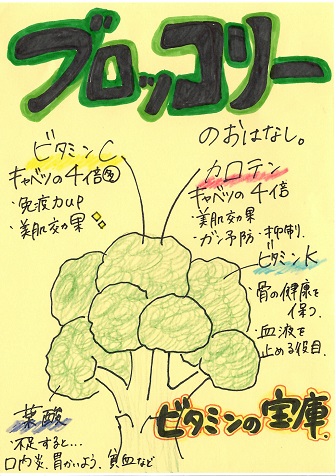 ブロッコリー
のおはなし。
ビタミンC
キャベツの4倍
・免疫力up
・美肌効果
カロテン
キャベツの4倍
・美肌効果
・ガン予防・抑制。
ビタミンK
・骨の健康を
保つ。
・血液を
止める役目。
葉酸
・不足すると…
口内炎、胃かいよう、貧血など
ビタミンの宝庫。